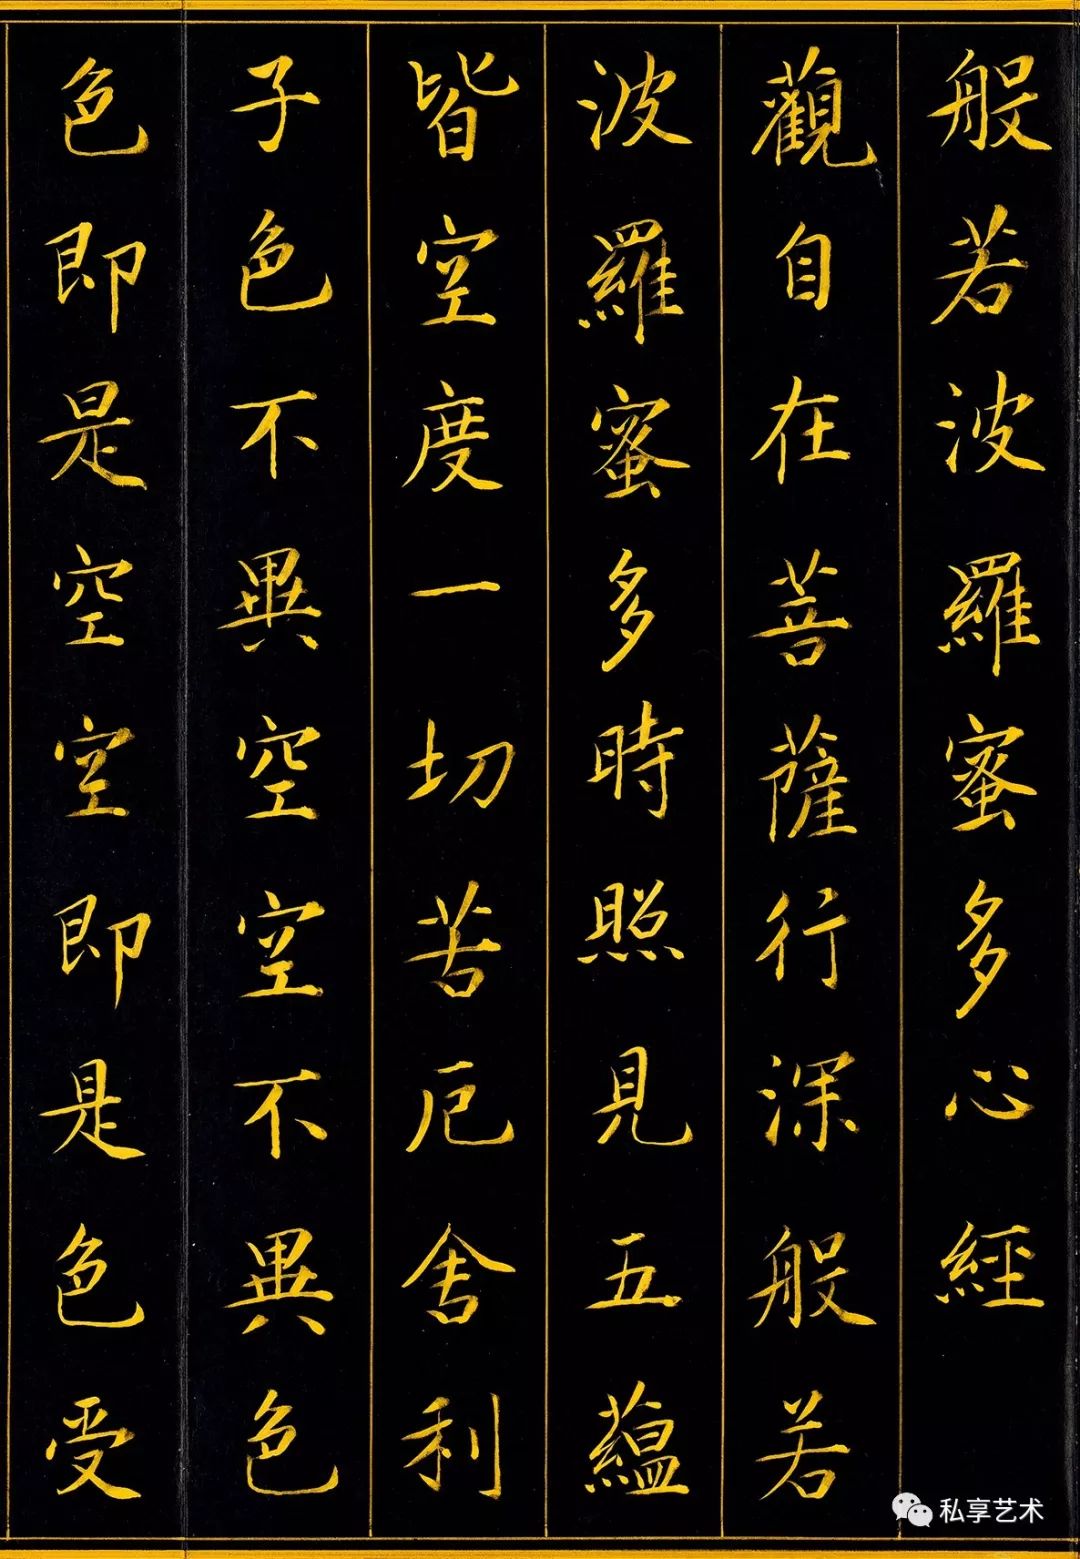 般若波羅蜜多心經
觀自在菩薩行深般若
波羅蜜多時照見五蘊
皆空度一切苦厄舍利
子色不異空空不異色
色即是空空即是色受
私享艺术